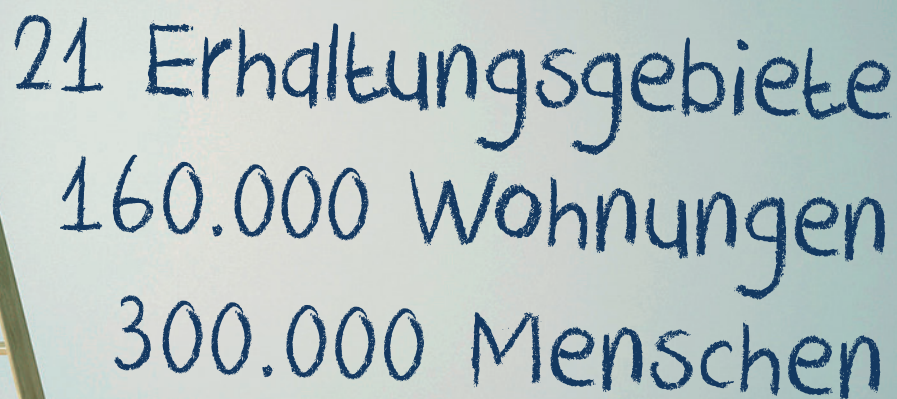 21 Erhaltungsgebiete
160.000 Wohnungen
300.000 Menschen